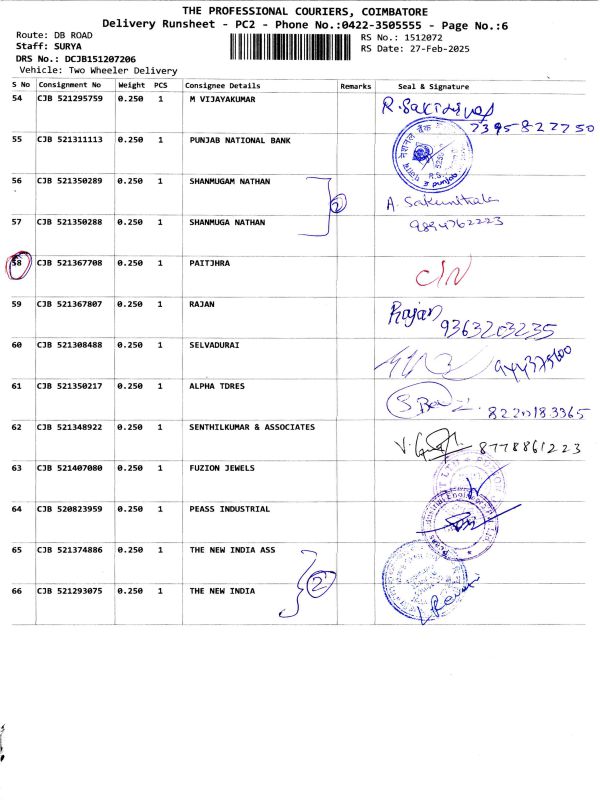 THE PROFESSIONAL COURIERS, COIMBATORE
Delivery Runsheet - PC2 - Phone No.:0422-3505555 - Page No.:6
Route: DB ROAD
Staff: SURYA
DRS No.: DCJB151207206
Vehicle: Two Wheeler Delivery
RS No.: 1512072
RS Date: 27-Feb-2025
S No Consignment No Weight PCS Consignee Details Remarks Seal & Signature
54 CJB 521295759 0.250 1 M VIJAYAKUMAR
7395822750
55 CJB 521311113 0.250 1 PUNJAB NATIONAL BANK
56 CJB 521350289 0.250 1 SHANMUGAM NATHAN 2 A. Sakunthala
57 CJB 521350288 0.250 1 SHANMUGA NATHAN 9894762223
58 CJB 521367708 0.250 1 PAITJHRA C/N
59 CJB 521367807 0.250 1 RAJAN Rajan 9363203235
60 CJB 521308488 0.250 1 SELVADURAI
61 CJB 521350217 0.250 1 ALPHA TDRES 8220183365
62 CJB 521348922 0.250 1 SENTHILKUMAR & ASSOCIATES 8778861223
63 CJB 521407080 0.250 1 FUZION JEWELS
64 CJB 520823959 0.250 1 PEASS INDUSTRIAL
65 CJB 521374886 0.250 1 THE NEW INDIA ASS 2
66 CJB 521293075 0.250 1 THE NEW INDIA